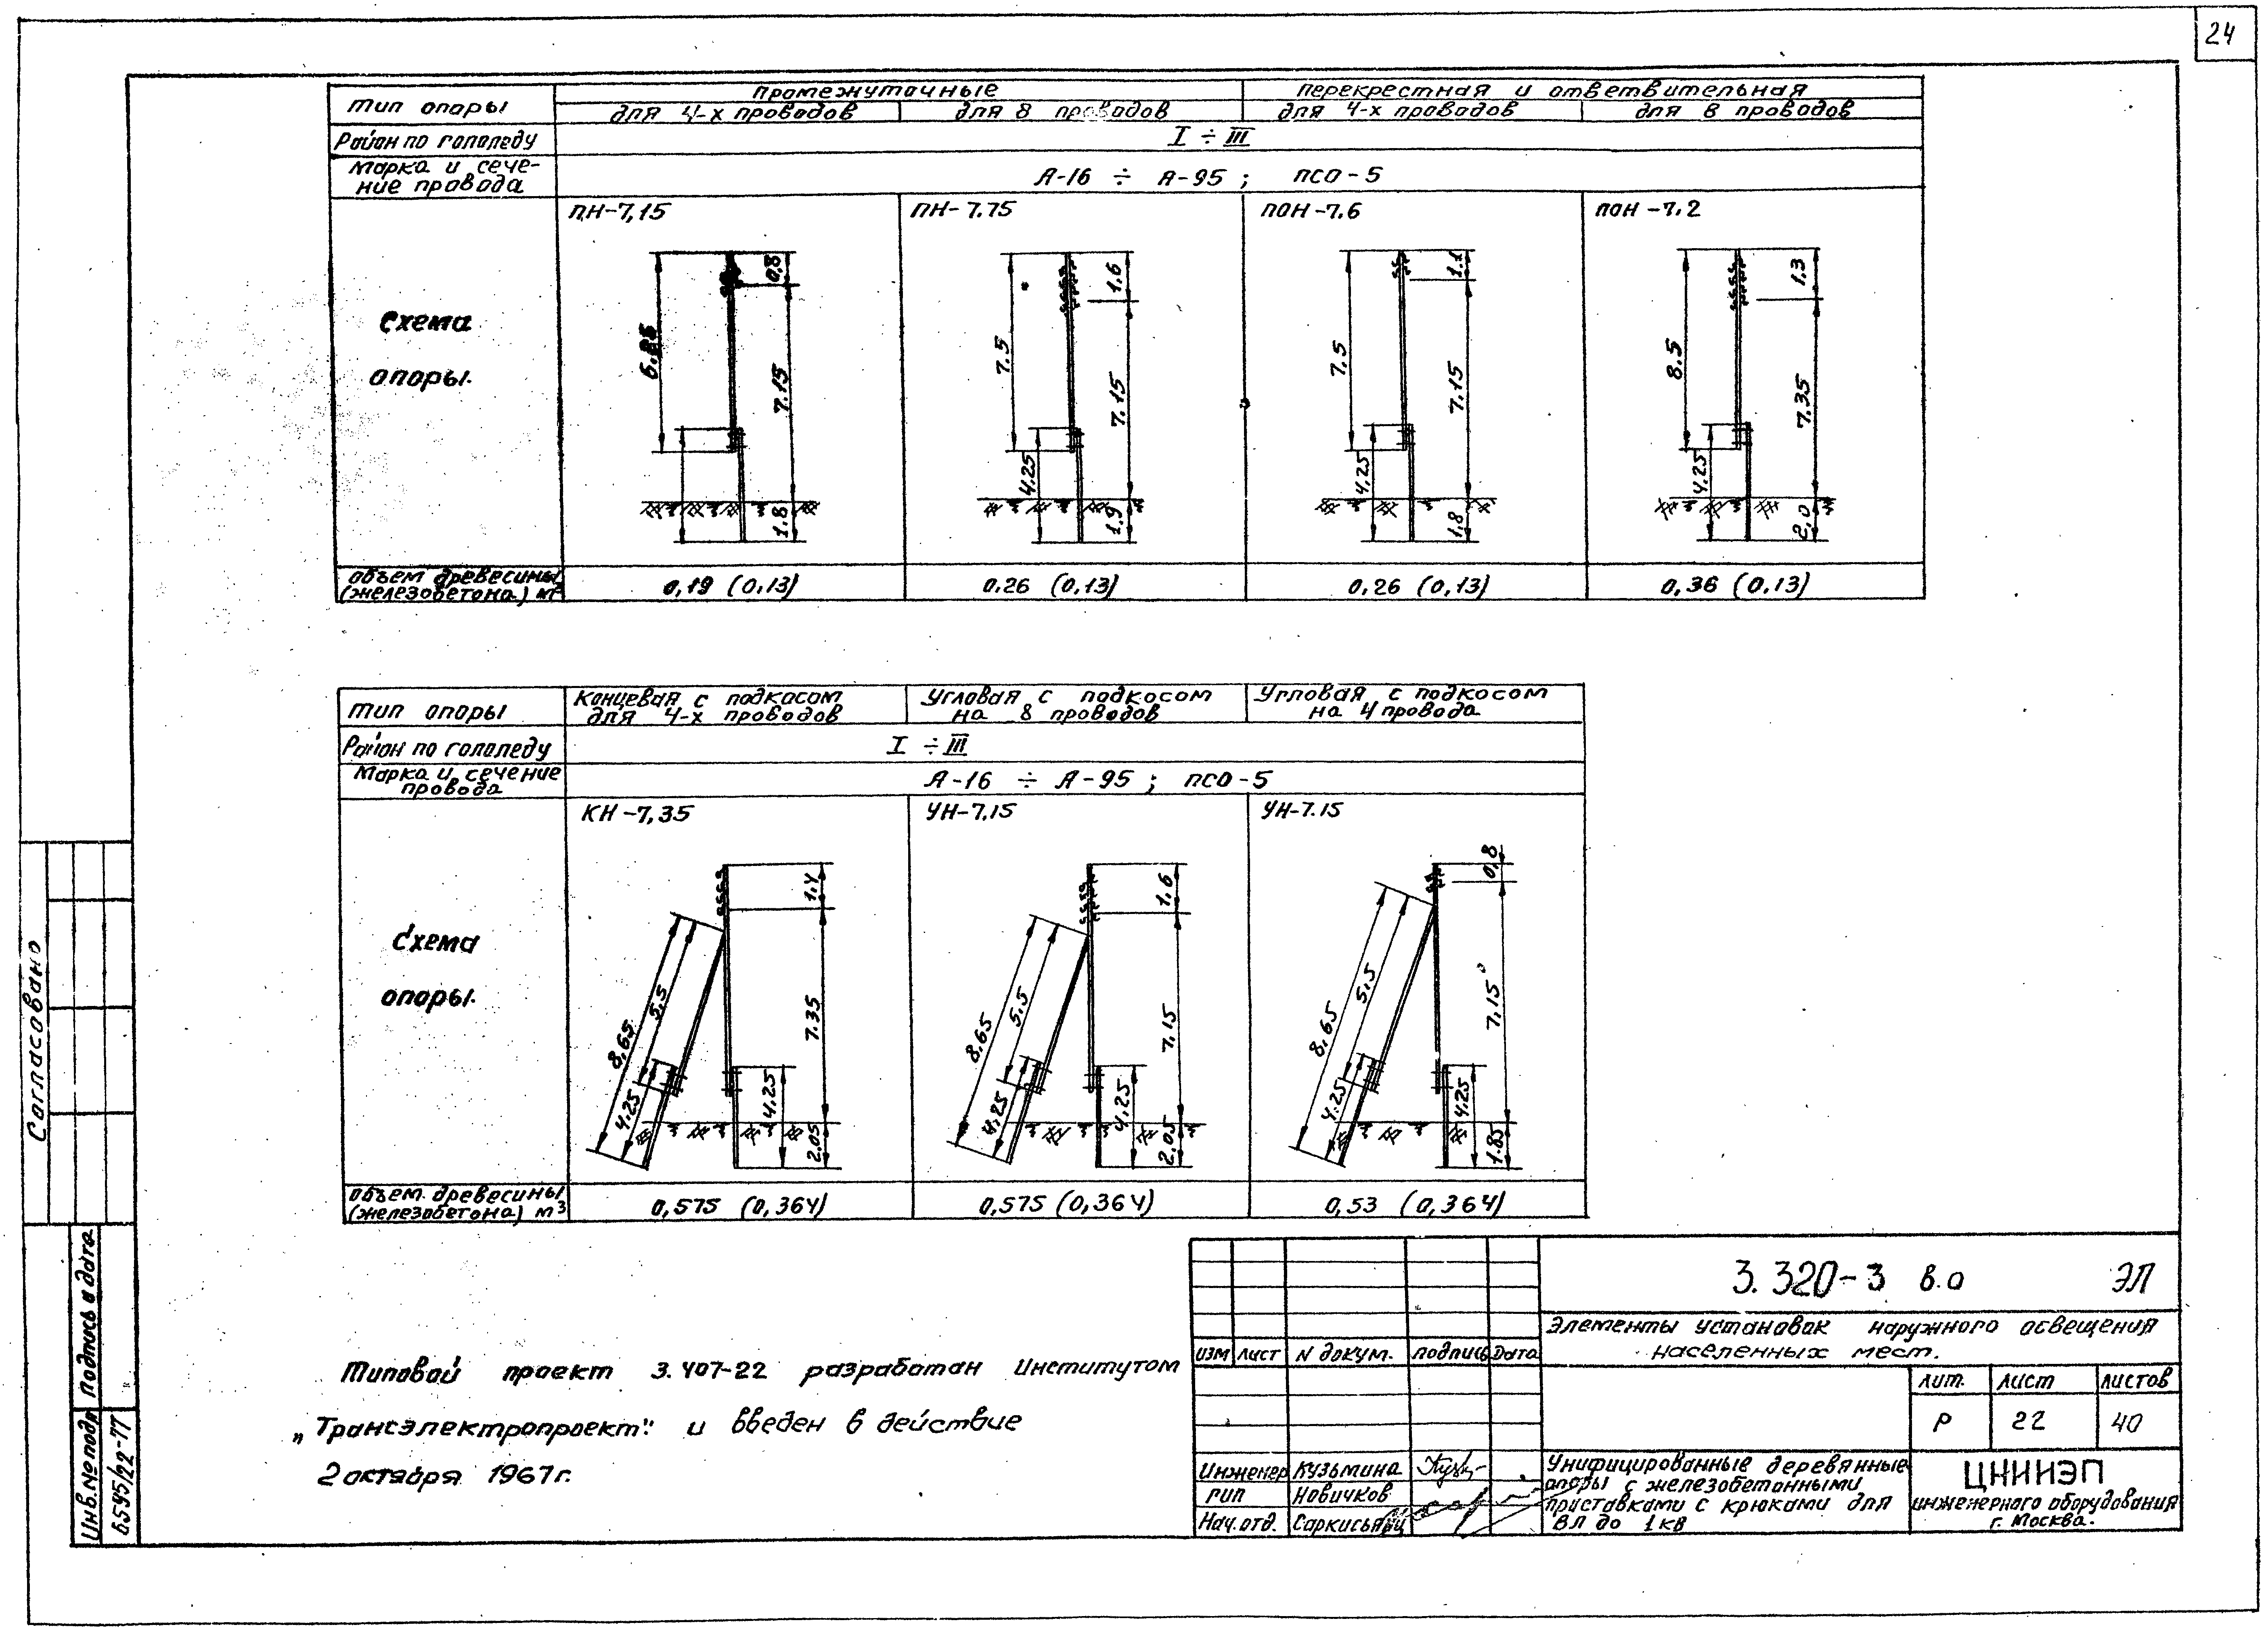 24
Тип опоры
промежуточные
перекрестная и ответвительная
для 4-х проводов
для 8 проводов
для 4-х проводов
для 8 проводов
Район по гололеду
I ÷ III
Марка и сече-
ние провода
А-16 ÷ А-95 ; ПСО-5
Схема
опоры.
ПН-7,15
6.85
0,8
7.15
1.8
ПН-7.75
7.5
4.25
1.6
7.15
1.9
ПОН-7.6
7.5
4.25
1.1
7.15
1.8
ПОН-7.2
8.5
4.25
1.3
7.35
2,0
Объем древесины
(железобетона) м³
0,19 (0,13)
0.26 (0,13)
0,26 (0,13)
0,36 (0,13)
Тип опоры
Концевая с подкосом
для 4-х проводов
Угловая с подкосом
на 8 проводов
Угловая с подкосом
на 4 провода
Район по гололеду
I ÷ III
Марка и сечение
провода
А-16 ÷ А-95 ; ПСО-5
Схема
опоры.
КН-7,35
8,65
5.5
4.25
4.25
1.4
7.35
2.05
УН-7,15
8.65
5.5
4,25
4.25
1.6
7,15
2.05
УН-7.15
8,65
5.5
4.25
4.25
0,8
7,15
1.85
Объем древесины
(железобетона) м³
0,575 (0,364)
0,575 (0,364)
0,53 (0,364)
Типовой проект 3.407-22 разработан Институтом
„Трансэлектропроект" и введен в действие
2 октября 1967г.
Согласовано
Инв.№ подл
Подпись и дата
6595/22-77
3.320-3 в.0 ЭЛ
Элементы установок наружного освещения
населенных мест.
изм
лист
N докум.
подпись
Дата
лит.
лист
листов
Р
22
40
Инженер Кузьмина
ГИП Новичков
Нач.отд. Саркисьянц
Унифицированные деревянные
опоры с железобетонными
приставками с крюками для
ВЛ до 1кВ
ЦНИИЭП
инженерного оборудования
г. Москва.